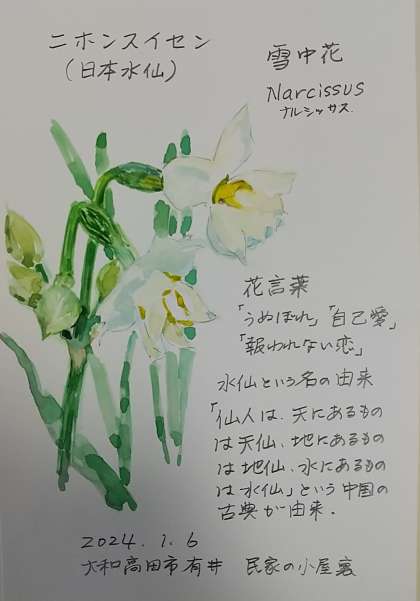 ニホンスイセン
(日本水仙)
雪中花
Narcissus
ナルシッサス.
花言葉
「うぬぼれ」「自己愛」
「報われない恋」
水仙という名の由来
「仙人は、天にあるもの
は天仙、地にあるもの
は地仙、水にあるもの
は水仙」という中国の
古典が由来.
2024.1.6
大和高田市有井 民家の小屋裏